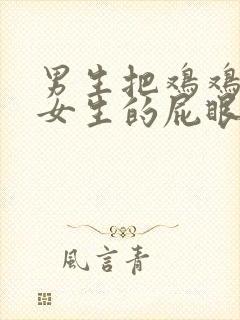 男生把鸡鸡
女生的屁眼
風言青